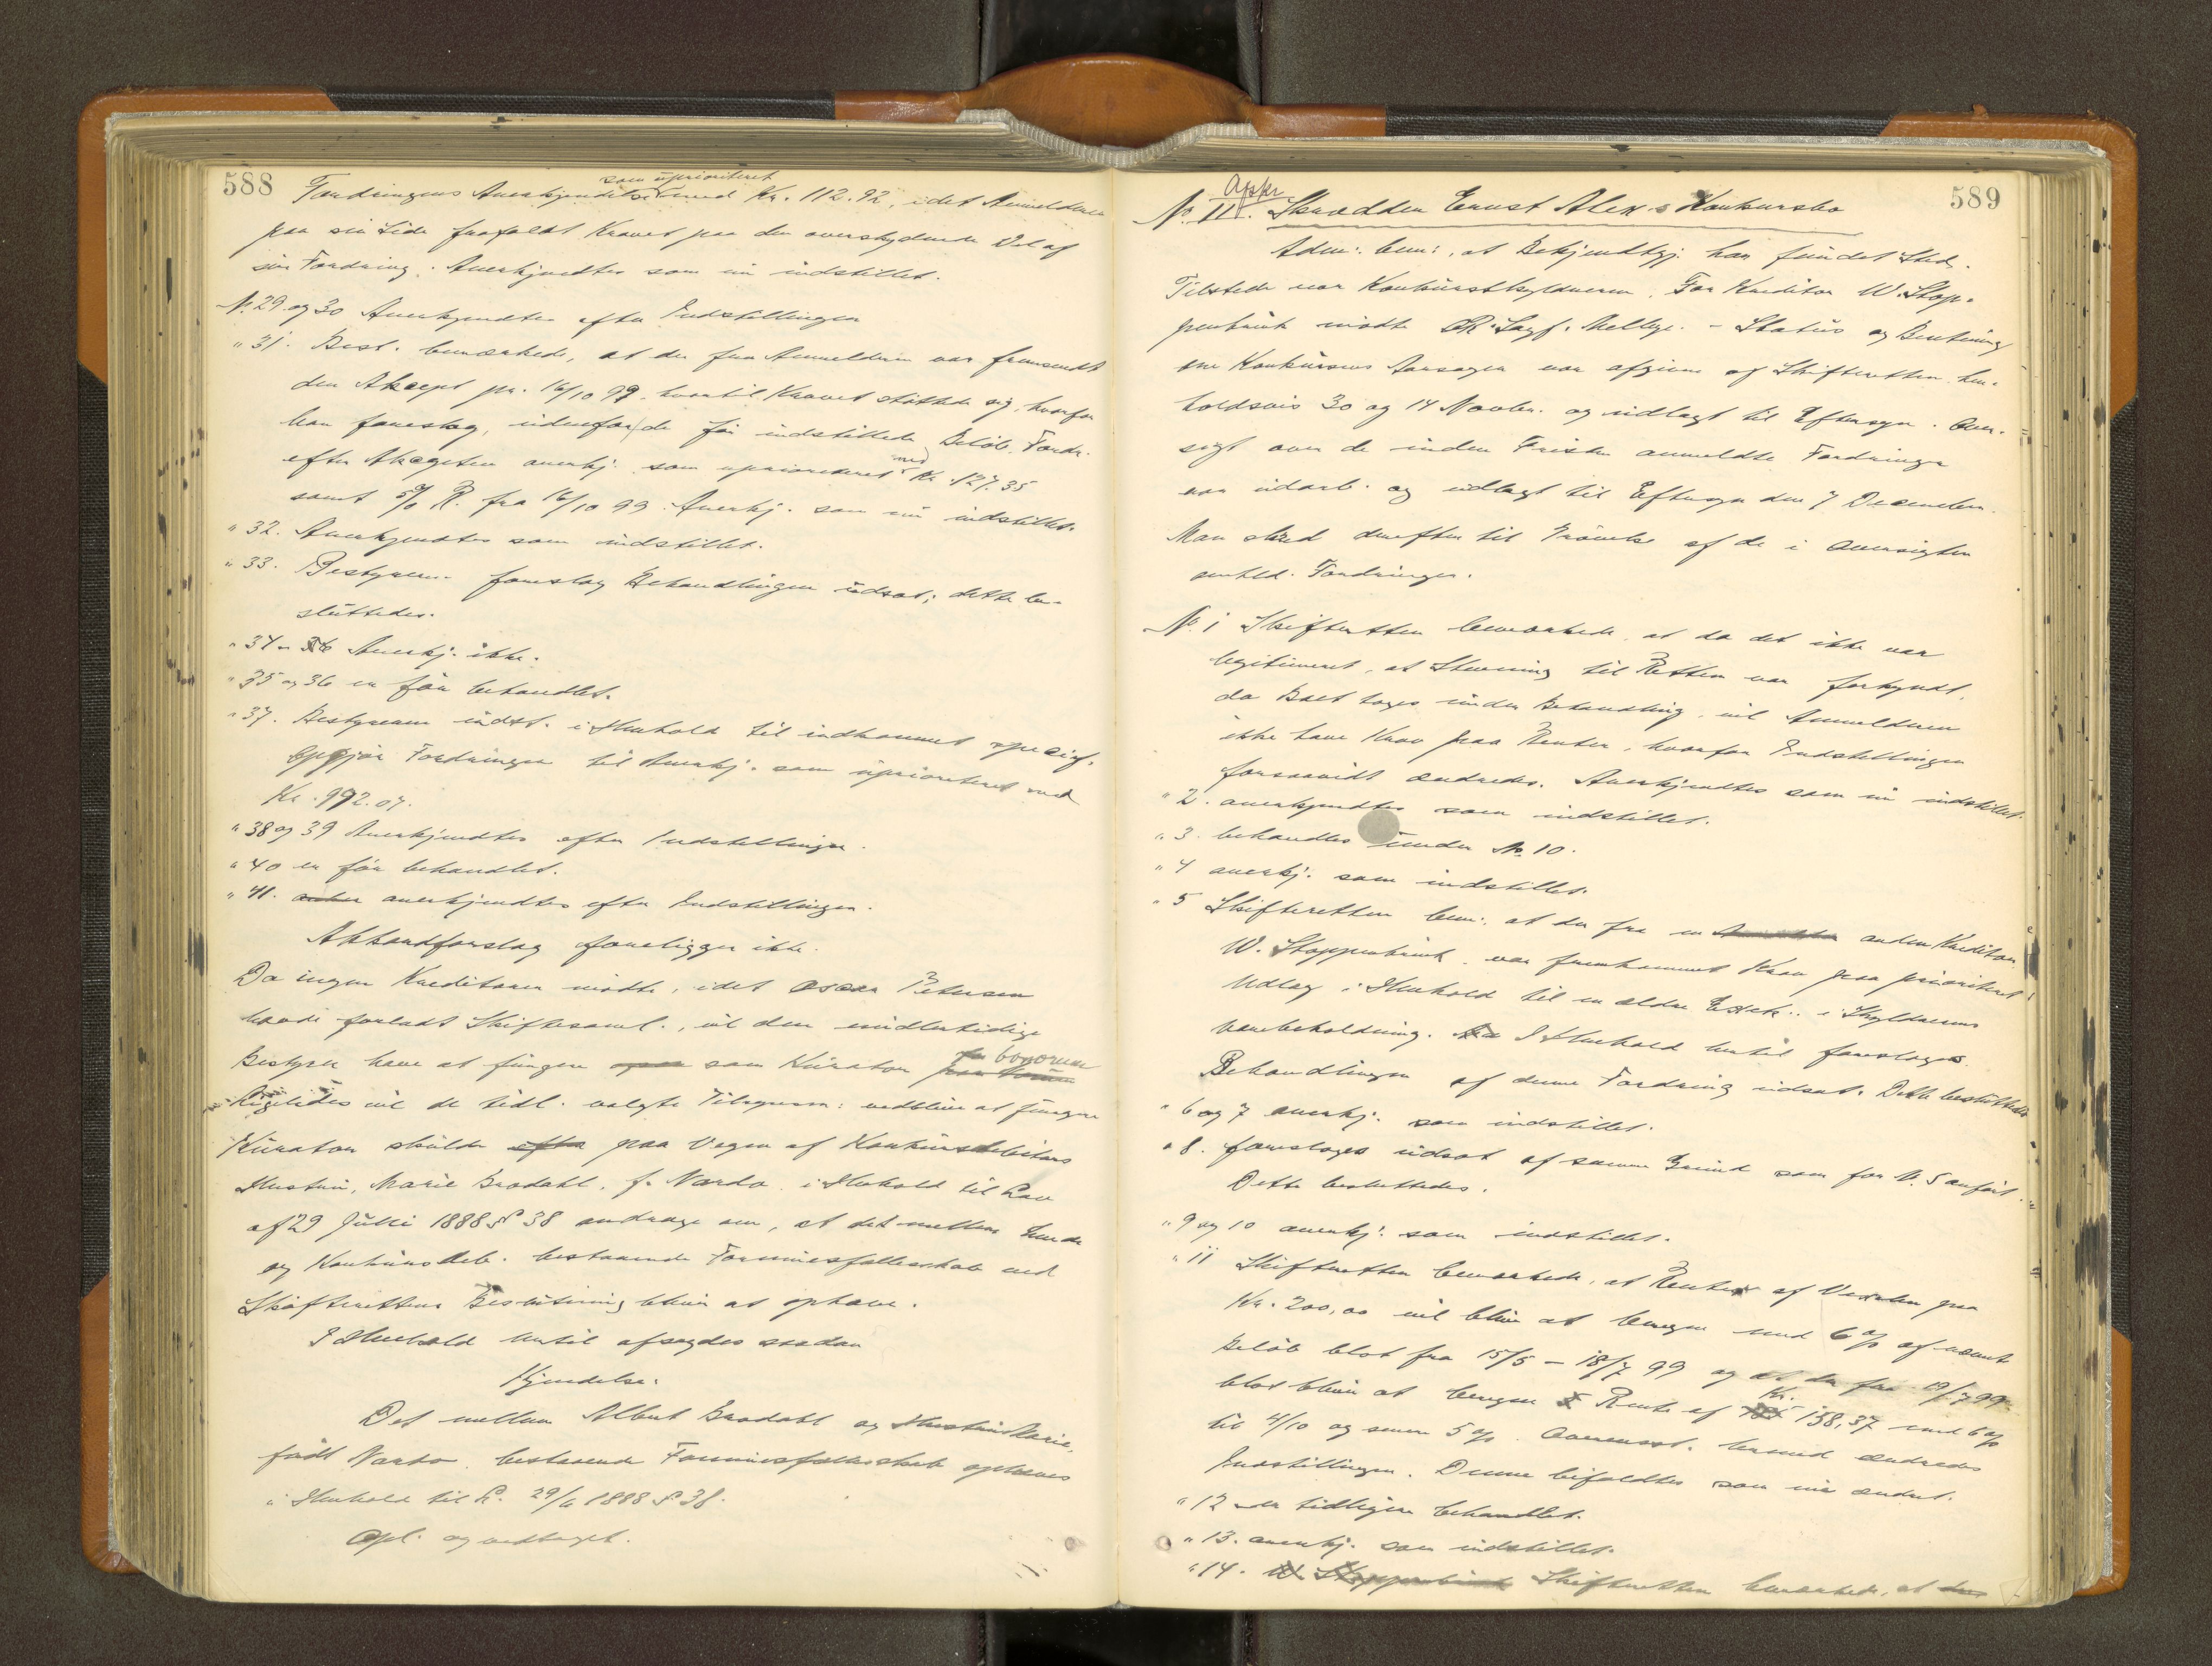 588
som uprioriteret
Fordringens Anerkjendelse med Kr. 112.92, idet Anmelderen
paa sin Side frafaldt Kravet paa den overskydende Del af
sin Fordring. Anerkjendtes som nu indstillet.
No. 29 og 30 Anerkjendtes efter Indstillingen
" 31. Best. bemærkede, at der fra Anmelderen var fremsendt
den Akcept pr. 16/10 99 hvortil Kravet støttede sig, hvorfor
han foreslog, udenfor de før indstillede Beløb, Fordr.
efter Akcepten anerkj. som uprioriteret med Kr. 127.35
samt 5% R. fra 16/10 99. Anerkj. som nu indstillet.
" 32. Anerkjendtes som indstillet.
" 33. Bestyreren foreslog Behandlingen udsat; dette be-
sluttedes.
" 34 Anerkj. ikke.
" 35 og 36 er før behandlet.
" 37. Bestyreren indst. i Henhold til indkommet specif.
Opgjør Fordringen til Anerkj. som uprioriteret med
Kr. 992.07.
" 38 og 39 Anerkjendtes efter Indstillingen.
" 40 er før behandlet.
" 41. anerkjendtes efter Indstillingen.
Akkordforslag foreligger ikke.
Da ingen Kreditorer mødte, idet Oscar Petersen
havde forladt Skiftesaml., vil den midlertidige
Bestyrer have at fungere som Kurator bonorum
Ligeledes vil de tidl. valgte Tilsynsm: vedblive at fungere
Kurator skulde paa Vegne af Konkursdebitors
Hustru, Marie Brodahl, f. Nardo i Henhold til Lov
af 29 Juni 1888 § 38 andrage om, at det mellem hende
og Konkursdeb. bestaaende Formuesfællesskab ved
Skifterettens Beslutning bliver at ophæve.
I Henhold hertil afsagdes saadan
Kjendelse:
Det mellem Albert Brodahl og Hustru Marie,
født Nardo bestaaende Formuesfællesskab ophæves
i Henhold til L. 29/6 1888 § 38.
Opl. og vedtaget.
589
No. 11. Skrædder Ernst Alex.s Konkursbo
Adm: bem:, at Bekjendtgj. har fundet Sted.
Tilstede var Konkursskyldneren. For Kreditor W. Stop-
penbrink mødte OR. Sagf. Mellbye. - Status og Beretning
om Konkursens Aarsager var afgiven af Skifteretten hen-
holdsvis 30 og 14 Novbr. og udlagt til Eftersyn. Over-
sigt over de inden Fristen anmeldte Fordringer
var udarb. og udlagt til Eftersyn den 7 December.
Man skred derefter til Prøvelse af de i Oversigten
omhld. Fordringer.
No. 1 Skifteretten bemærkede, at da det ikke var
legitimeret, at Stevning til Retten var forkyndt,
da Boet toges under Behandling, vil Anmelderen
ikke have Krav paa Renter, hvorfor Indstillingen
forsaavidt ændredes. Anerkjendtes som nu indstillet.
" 2. anerkjendtes som indstillet.
" 3. behandles under No. 10.
" 4 anerkj. som indstillet.
" 5 Skifteretten bem: at der fra en anden Kreditor
W. Stoppenbrink var fremkommet Krav paa prioriteret
Udlæg i Henhold til en ældre Exek. i Skyldnerens
Varebeholdning. I Henhold hertil foreslaaes
Behandlingen af denne Fordring udsat. Dette besluttedes
" 6 og 7 anerkj. som indstillet.
" 8. foreslaaes udsat af samme Grund som for N. 5 anført.
Dette besluttedes.
" 9 og 10 anerkj. som indstillet.
" 11 Skifteretten bemærkede, at Renter af Vexelen paa
Kr. 200,00 vil blive at beregne med 6% af nævnte
Beløb blot fra 15/5 - 18/7 99 og at der fra 19/7 99
blot bliver at beregne Rente af Kr. 158,37 med 6%
til 4/10 og senere 5%. Overensst. hermed ændredes
Indstillingen. Denne bifaldtes som nu ændret.
" 12 er tidligere behandlet.
" 13. anerkj. som indstillet.
" 14. W. Stoppenbrink Skifteretten bemærkede, at